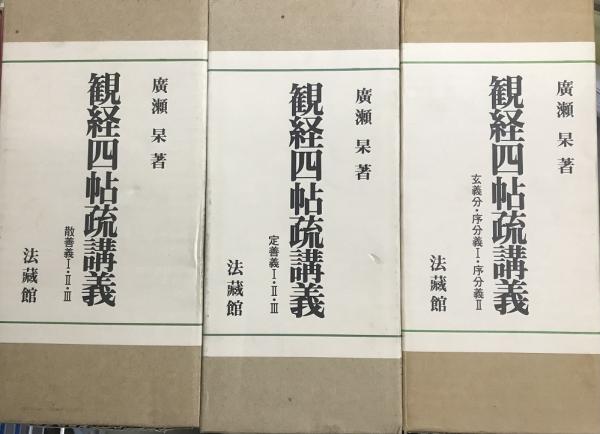 廣瀬 杲 著
観経四帖疏講義
玄義分・序分義Ⅰ・序分義Ⅱ
法藏館
廣瀬 杲 著
観経四帖疏講義
定善義Ⅰ・Ⅱ・Ⅲ
法藏館
廣瀬 杲 著
観経四帖疏講義
散善義Ⅰ・Ⅱ・Ⅲ
法藏館